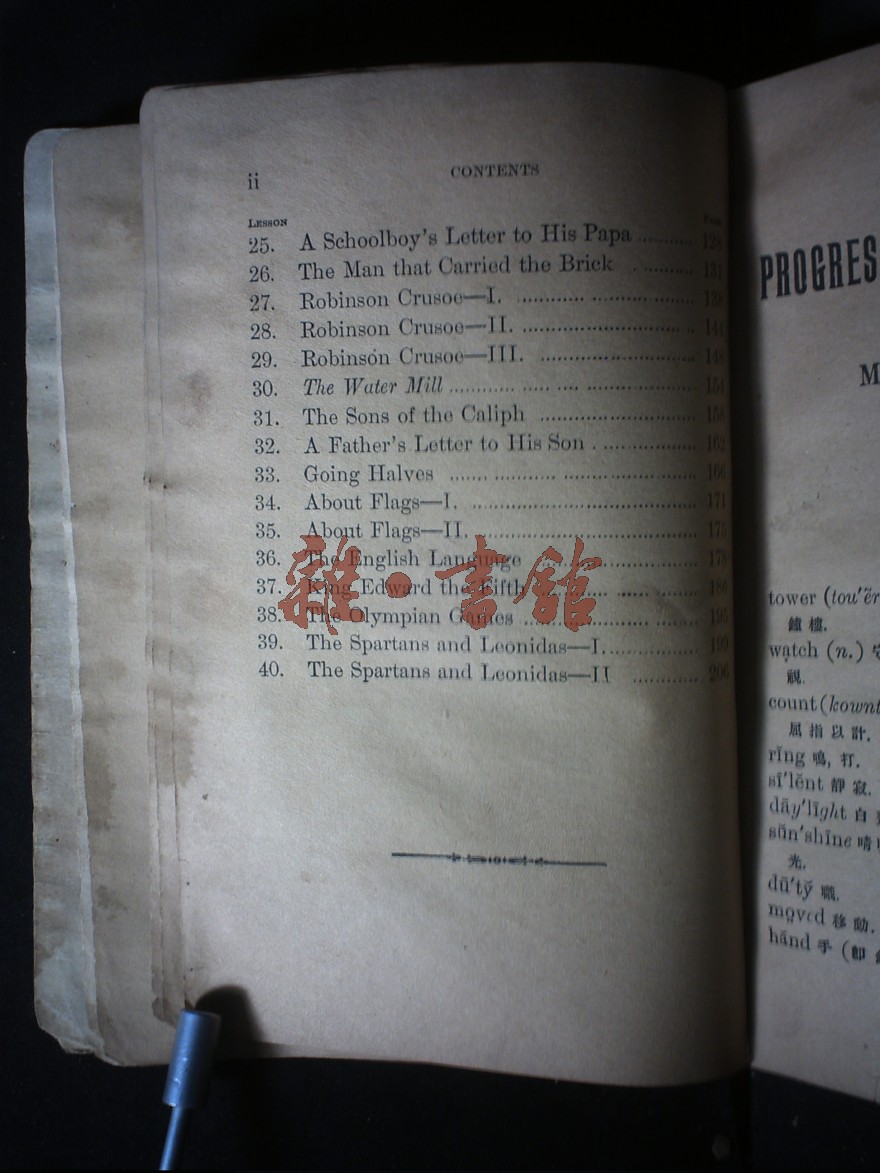 ii
CONTENTS
LESSON
25. A Schoolboy's Letter to His Papa .......... 128
26. The Man that Carried the Brick . .......... 131
27. Robinson Crusoe—I. ............ ..................
28. Robinson Crusoe—II. ..............................
29. Robinson Crusoe—III. ...........................
30. The Water Mill ............ ..... .... ..................... 154
31. The Sons of the Caliph ...........................
32. A Father's Letter to His Son . ................. 162
33. Going Halves ....... ................ .................. 166
34. About Flags—I. ....................................... 171
35. About Flags—II. ..................................... 175
36. The English Language .......................... 178
37. King Edward the Fifth ............ .............. 186
38. The Olympian Games .............................. 195
39. The Spartans and Leonidas—I. ............... 199
40. The Spartans and Leonidas—II ............ 206
雜·書館
PROGRES
M
tower (tou'ẽr
鐘樓.
wạtch (n.)
視.
count (kownt
屈指以計.
rĭng 鳴, 打.
sī'lĕnt 靜寂.
dāy'līght 白
sŭn'shīne 晴
光.
dū'tў 職.
mo̤ved 移動.
hănd 手 (卽